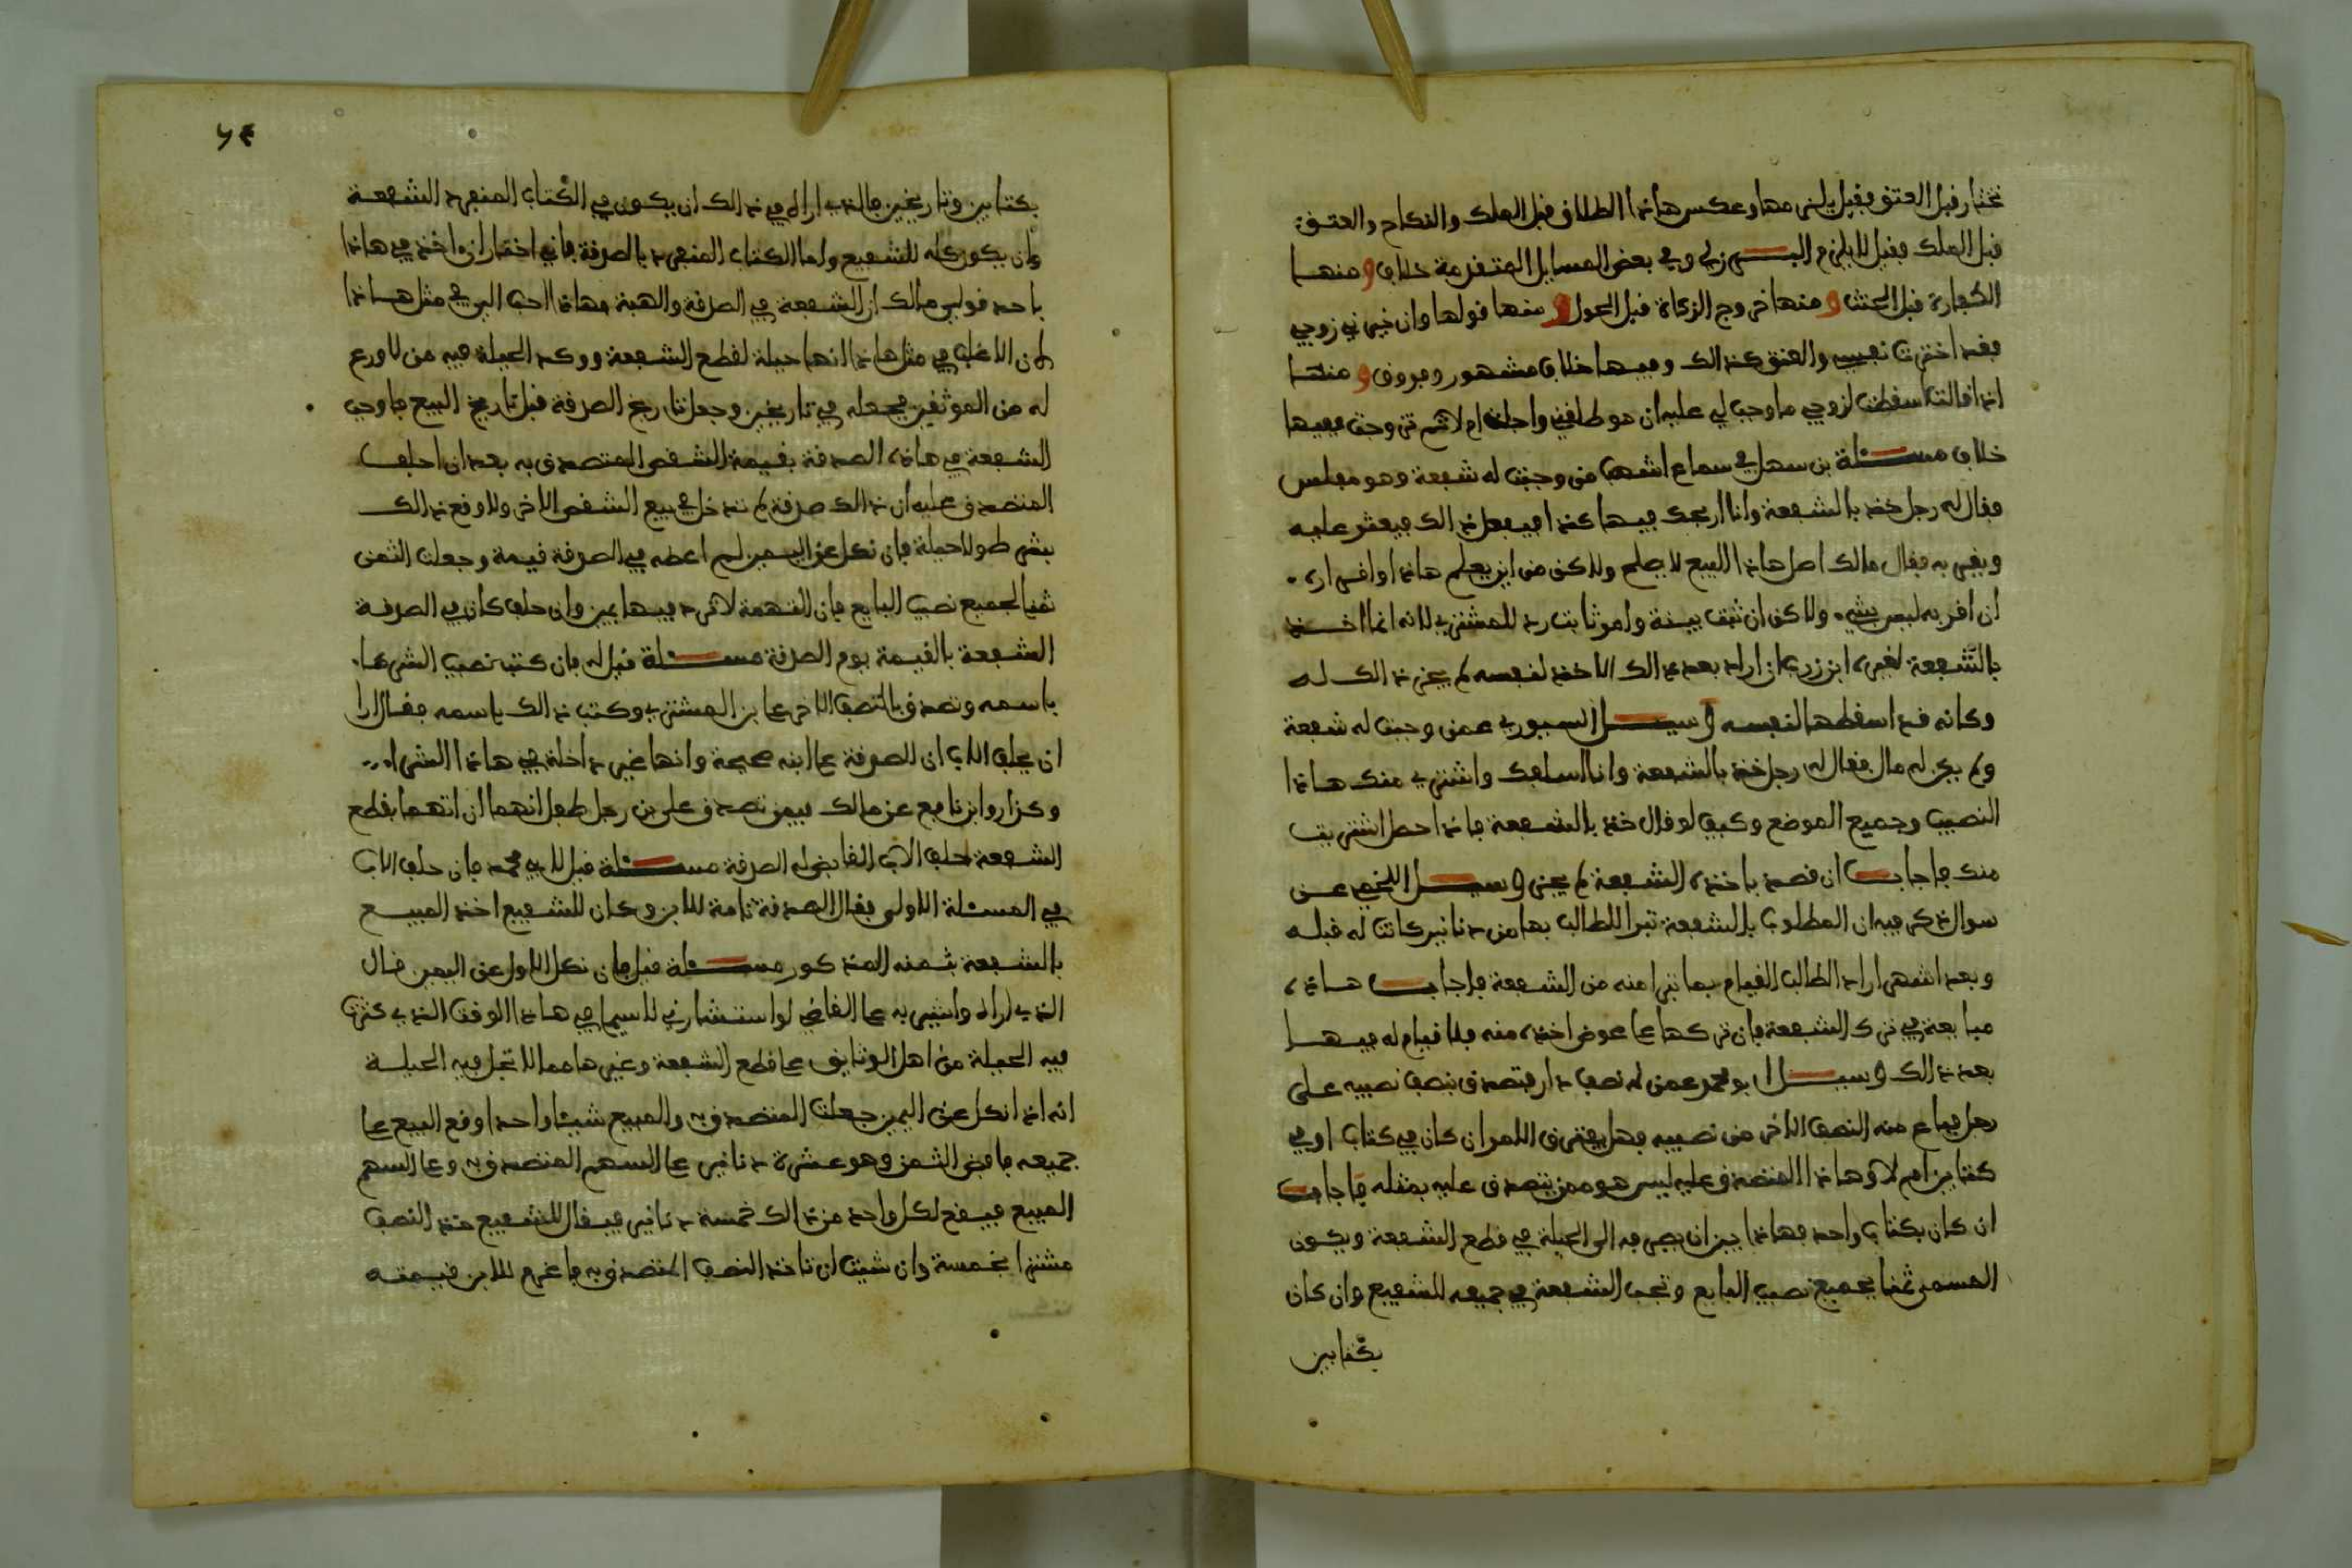 تختار قبل العتق فقيل يلزمها وعكس هاذا الطلاق قبل الملك والنكاح والعتق
قبل الملك فقيل لا يلزم البرزلي وفي بعض المسايل المتقدمة خلاف ومنها
الكفارة قبل الحنث ومنها خروج الزكاة قبل الحول ومنها قولها وان خيرني زوجي
فقد اخترت نفسي والعتق كذالك وفيها خلاف مشهور وفروق ومنها
اذا قالت اسقطت لزوجي ما وجب لي عليه ان هو طلقني واجله ام لا ثم تزوجت ففيها
خلاف مسئلة بن سهل في سماع اشهب من وجبت له شفعة وهو مفلس
فقال له رجل خذ بالشفعة وانا اربحك فيها كذا فيفعل ذالك فيعثر عليه
ويقر به فقال مالك اصل هاذا البيع لا يصلح ولاكن من اين يعلم هاذا او اقراره
ان اقر به ليس بشيء ولاكن ان ثبت ببينة وامر ثابت رد للمشتري لانه انما اخذ
بالشفعة لغيره ابن زرب ان اراد بعد ذالك الاخذ لنفسه لم يجز ذالك له
وكانه قد اسقطها لنفسه وسيل السيوري عمن وجبت له شفعة
ولم يكن له مال فقال له رجل خذ بالشفعة وانا اسلفك واشتري منك هاذا
النصيب وجميع الموضع وكيف لو قال خذ بالشفعة فاذا حصل اشتريت
منك فاجاب ان قصد باخذه الشفعة لم يجز وسيل اللخمي عن
سوال ذكر فيه ان المطلوب بالشفعة تبرا للطالب بها من دنانير كانت له قبله
وبعد اشهر اراد الطالب القيام بما تبرا منه من الشفعة فاجاب هاذه
مبايعة في ترك الشفعة فان تركها عا عوض اخذه منه فلا قيام له فيها
بعد ذالك وسيل ابو محمد عمن له نصف دار فتصدق بنصف نصيبه على
رجل فباع منه النصف الاخر من نصيبه فهل يفترق الامر ان كان في كتاب او في
كتابين ام لا وهاذا المتصدق عليه ليس هو ممن يتصدق عليه بمثله فاجاب
ان كان بكتاب واحد فهاذا بين ان يصرفه الى الحيلة في قطع الشفعة ويكون
المسمى ثمنا بجميع نصيب البايع وتجب الشفعة في جميعه للشفيع وان كان
بكتابين
٦٤
بكتابين وتاريخين فالذي اراه في ذالك ان يكون في الكتاب المنفرد الشفعة
وان يكون كله للشفيع واما الكتاب المنفرد بالصدقة فاني اختار ان اخذ في هاذا
باحد قولي مالك ان الشفعة في الصدقة والهبة وهاذا احب الي في مثل هاذا
لان الاغلب في مثل هاذا انها حيلة لقطع الشفعة ووكد الحيلة فيه من لا ورع
له من الموثقين فجعله في تاريخين وجعل تاريخ الصدقة قبل تاريخ البيع فاوجب
الشفعة في هاذه الصدقة بقيمة الشقص المتصدق به بعد ان احلف
المتصدق عليه ان ذالك صدقة لم تدخل في بيع الشقص الاخر ولا وقع ذالك
بشرط ولا حيلة فان نكل عن اليمين لم اعطه في الصدقة قيمة وجعلت الثمن
ثمنا لجميع نصيب البايع فان التهمة لا ترد فيها يمين وان حلف كان في الصدقة
الشفعة بالقيمة يوم الصدقة مسئلة قيل له فان كتب نصيب الشراء
باسمه وتصدق بالنصف الاخر عا بن المشتري وكتب ذالك باسمه فقال ارا
ان يحلف الاب ان الصدقة عا ابنه صحيحة وانها غير داخلة في هاذا الشراء
وكذا روا بن نافع عن مالك فيمن تصدق على بن رجل طفل انهما ان اتهما بقطع
الشفعة احلف الاب القابض له الصدقة مسئلة قيل لابي محمد فان حلف الاب
في المسئلة الاولى فقال الصدقة تامة للابن وكان للشفيع اخذ المبيع
بالشفعة بثمنه المذكور مسئلة قيل فان نكل الاول عن اليمين قال
الذي اراه واشير به عا القاضي لو استشارني لاسيما في هاذا الوقت الذي كثرت
فيه الحيلة من اهل الوثايق عا قطع الشفعة وغيرها مما لا تحل فيه الحيلة
انه اذا نكل عن اليمين جعلت المتصدق به والمبيع شيئا واحدا وقع البيع عا
جميعه فافض الثمن وهو عشرة دنانير عا السهم المتصدق به وعا السهم
المبيع فيقع لكل واحد من ذالك خمسة دنانير فيقال للشفيع خذ النصف
مشترا بخمسة وان شيت ان تاخذ النصف المتصدق به فاغرم للابن قيمته